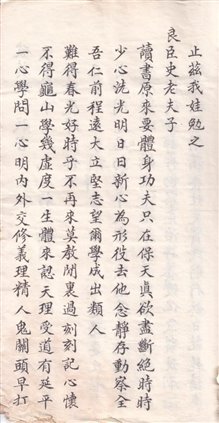 止茲我娃勉之
良臣史老夫子
讀書原來要體身功夫只在保天真欲盡斷絕時時
少心洗光明日日新心為形役去他念靜存動察全
吾仁前程遠大立堅志望爾學成出類人
難得春光好時子不再來莫教閒裏過刻刻記心懷
不得龜山學幾虛度一生體來認天理受道有延平
一心學問一心明內外交修義理精人鬼關頭早打